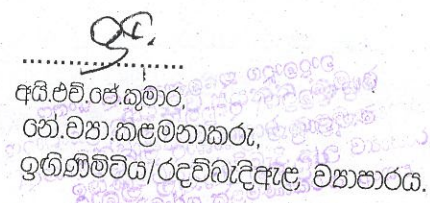 ....................
අයි.එච්.ජේ.කුමාර,
නේ.ව්‍යා.කළමනාකරු,
ඉඟිණිමිටිය/රදව්බැදිඇළ ව්‍යාපාරය.